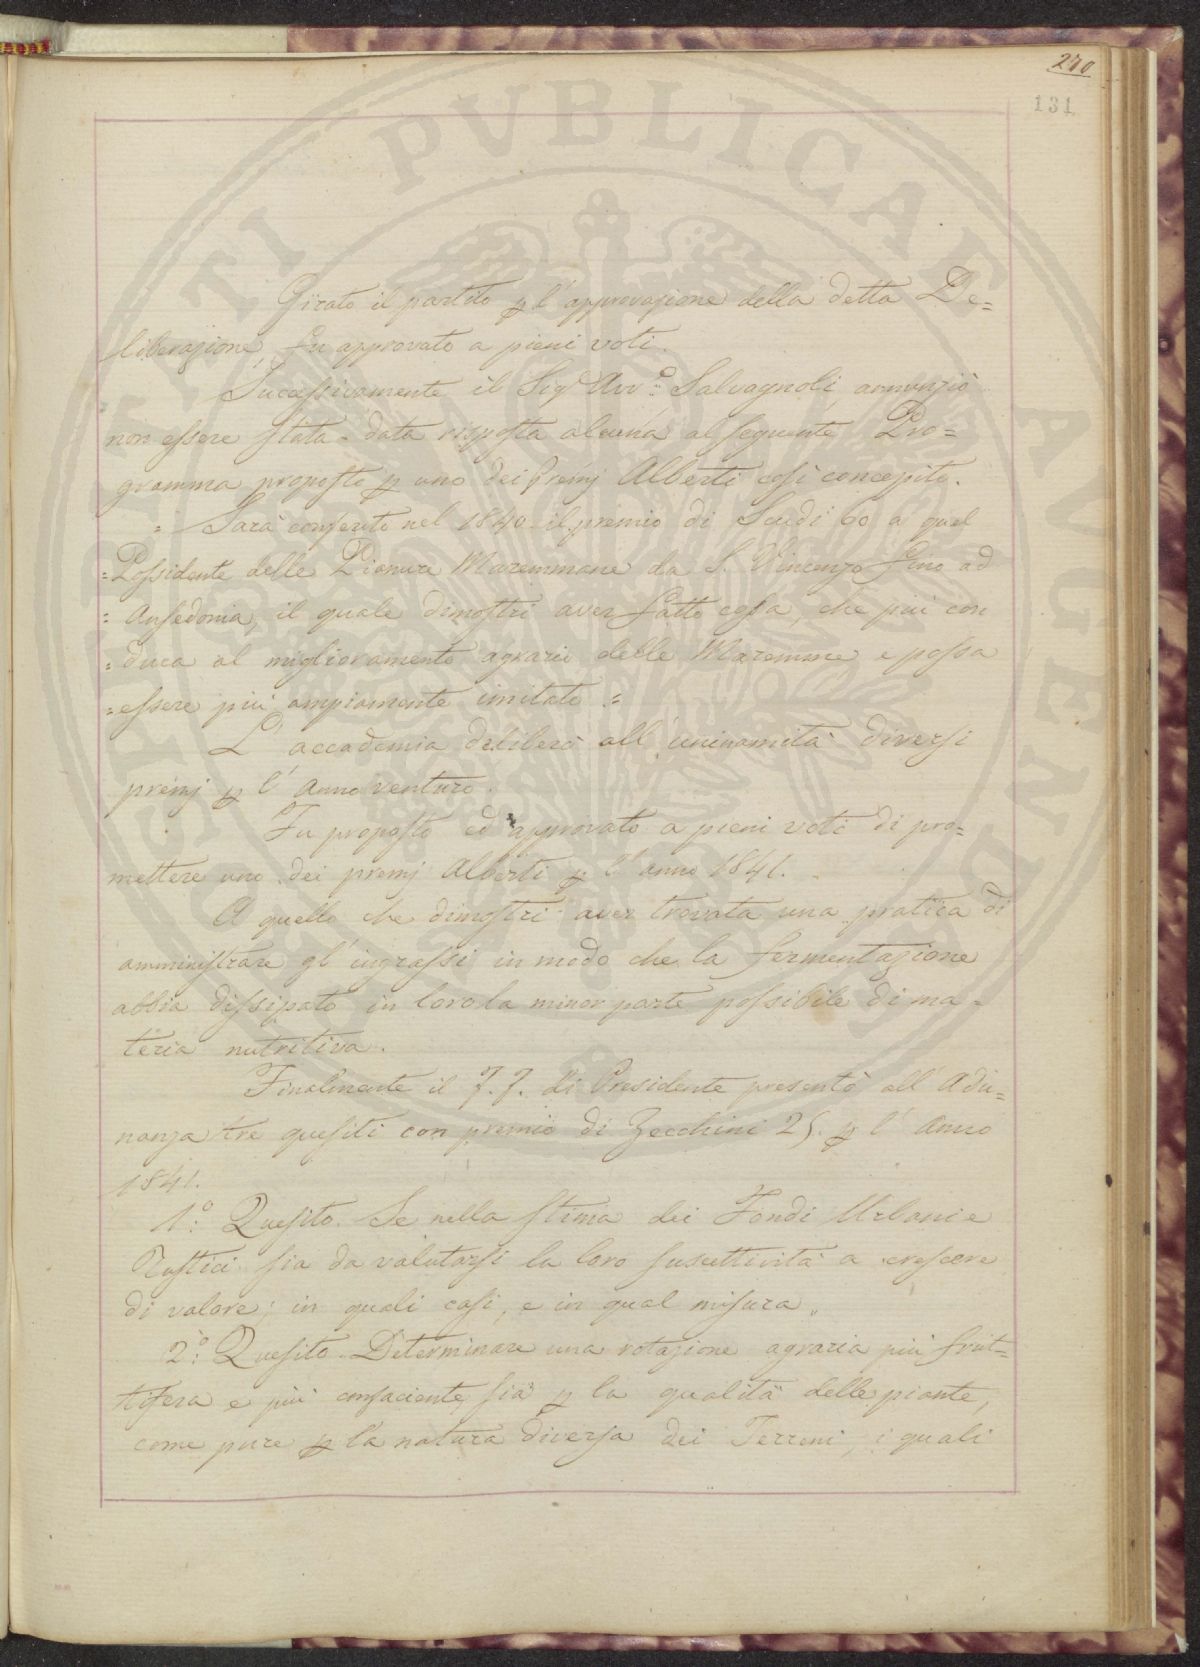 270
131
Girato il partito p l'approvazione della detta De=
liberazione, fu approvato a pieni voti.
Successivamente il Sig.r Avv.o Salvagnoli annunziò
non essere stata data risposta alcuna al seguente Pro=
gramma proposto p uno dei Premj Alberti così concepito.
= Sarà conferito nel 1840 il premio di Scudi 60 a quel
= Possidente delle Pianure Maremmane da S. Vincenzo fino ad
= Ansedonia, il quale dimostri aver fatto cosa, che più con
= duca al miglioramento agrario delle Maremme e possa
= essere più ampiamente imitato =
L'accademia deliberò all'uninamità diversi
premj p l'anno venturo.
Fu proposto ed approvato a pieni voti di pro=
mettere uno dei premj Alberti p l'anno 1841.
A quello che dimostri aver trovata una pratica di
amministrare gl'ingrassi in modo che la fermentazione
abbia dissipato in loro la minor parte possibile di ma=
teria nutritiva.
Finalmente il F.F. di Presidente presentò all'Adu=
nanza tre quesiti con premio di Zecchini 25. p l'Anno
1841.
1.o Quesito. Se nella stima dei Fondi Urbani e
Rustici sia da valutarsi la loro suscettività a crescere
di valore; in quali casi, e in qual misura.
2.o Quesito. Determinare una rotazione agraria più frut=
tifera e più confaciente sia p la qualità delle piante,
come pure p la natura diversa dei Terreni, i quali
PVBLICAE